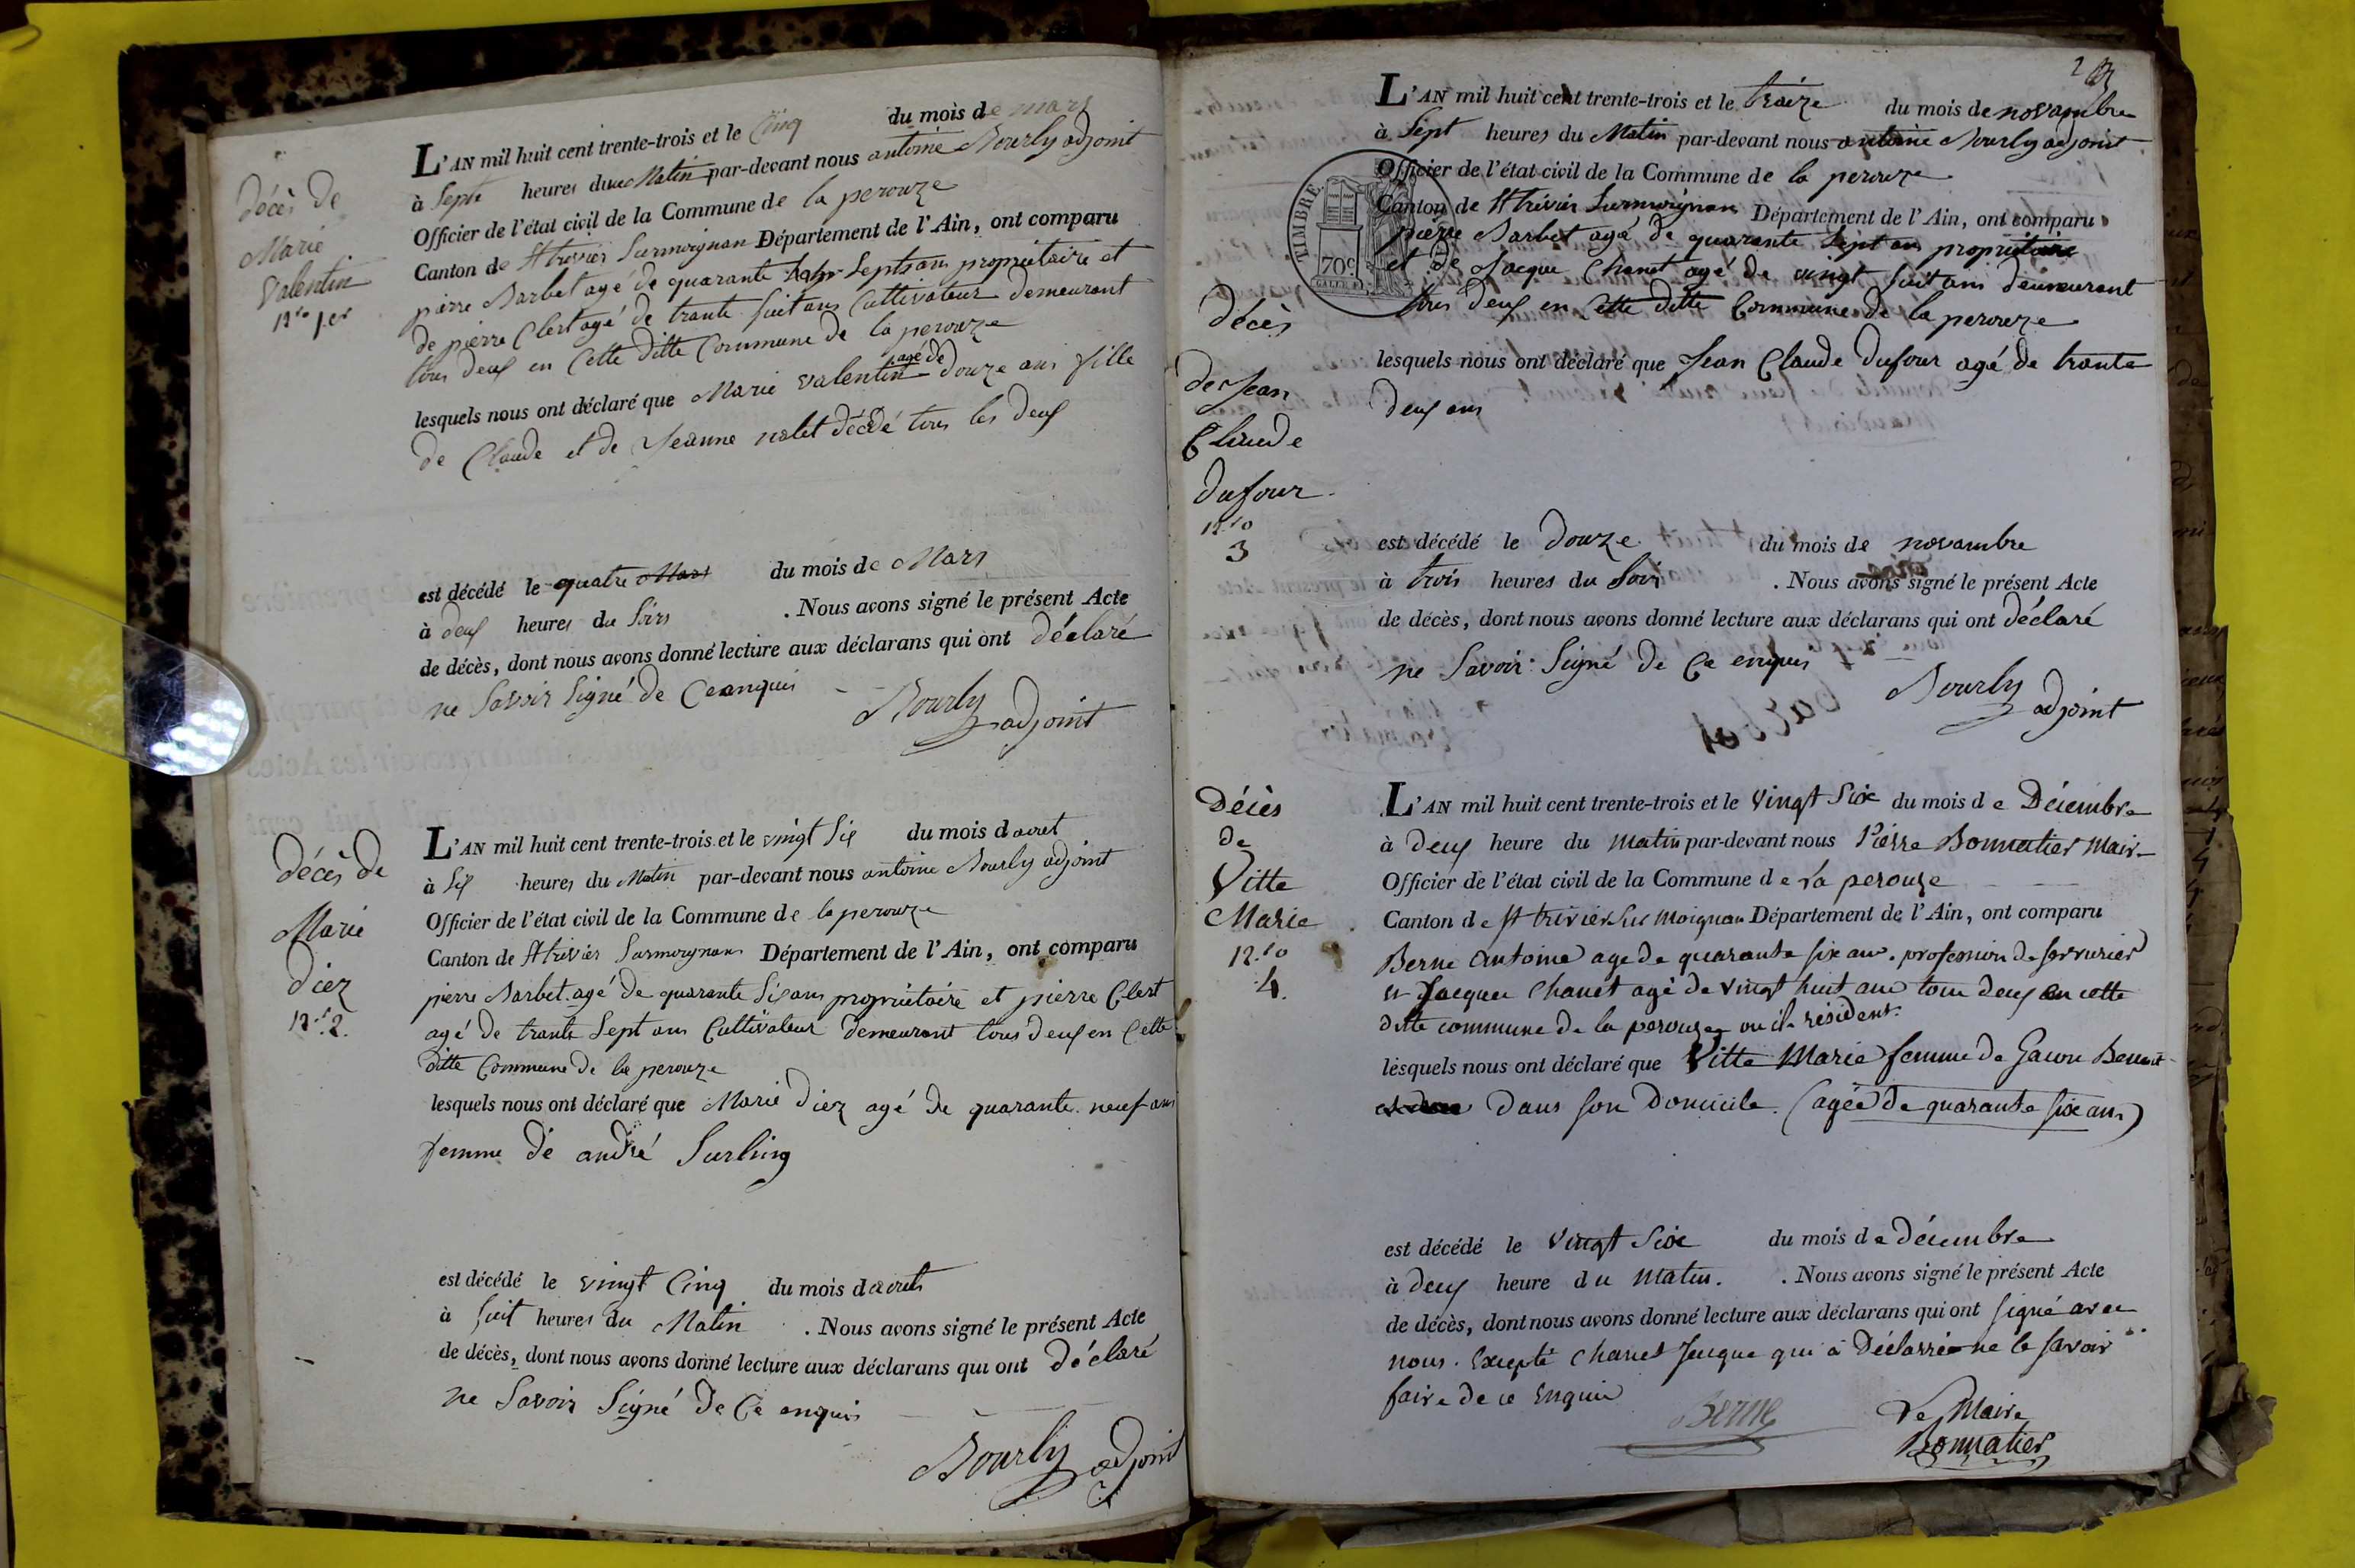 décès de
Marie
Valentin
N.ro 1.er
L'AN mil huit cent trente-trois et le cinq du mois de mars
à Septe heures du Matin par-devant nous antoine Bourly adjoint
Officier de l'état civil de la Commune de la perouze
Canton de St trivier Surmoignan Département de l'Ain, ont comparu
pierre Barbet agé de quarante Septs ans propriétaire et
de pierre Clert agé de trante huit ans Cultivateur demeurant
tous deux en Cette ditte Commune de la perouze
lesquels nous ont déclaré que Marie Valentin agé de douze ans fille
de Claude et de Jeanne nalet décédé tous les deux
est décédé le quatre Mars du mois de Mars
à deux heures du Soirs . Nous avons signé le présent Acte
de décès, dont nous avons donné lecture aux déclarans qui ont déclaré
ne Savoir Signé de Ce anquis
Bourly adjoint
décès de
Marie
diez
N.ro 2.
L'AN mil huit cent trente-trois et le vingt Six du mois d aout
à Six heures du Matin par-devant nous antoine Bourly adjoint
Officier de l'état civil de la Commune de la perouze
Canton de St trivier Surmoignans Département de l'Ain, ont comparu
pierre Barbet agé de quarante Six ans propriétaire et pierre Clert
agé de trante Sept ans Cultivateur demeurant tous deux en Cette
ditte Commune de la perouze
lesquels nous ont déclaré que Marie diez agé de quarante neuf ans
femme de andré
est décédé le vingt Cinq du mois d aouts
à huit heures du Matin . Nous avons signé le présent Acte
de décès, dont nous avons donné lecture aux déclarans qui ont déclaré
ne Savoir Signé de Ce anquis
Bourly adjoint
L'AN mil huit cent trente-trois et le traize du mois de novambre
à Sept heures du Matin par-devant nous antoine Bourly adjoint
Officier de l'état civil de la Commune de la perouze
Canton de St trivier Surmoignans Département de l'Ain, ont comparu
pierre Barbet agé de quarante Sept ans propriétaire
et de Jacque Chanet agé de vingt huit ans demeurant
tous deux en Cette ditte Commune de la perouze
TIMBRE
70c
décès
de Jean
Claude
dufour
N.ro
3
lesquels nous ont déclaré que Jean Claude dufour agé de trante
deux ans
est décédé le douze du mois de novambre
à trois heures du Soir . Nous avons signé le présent Acte
de décès, dont nous avons donné lecture aux déclarans qui ont déclaré
ne Savoir Signé de Ce enquis
Bourly adjoint
Décès
de
Vitte
Marie
N.ro
4.
L'AN mil huit cent trente-trois et le vingt Six du mois d e Décembre
à deux heure du matin par-devant nous Pierre Bonnatier Maire
Officier de l'état civil de la Commune d e La perouze
Canton d e St trivier Sur Moignan Département de l'Ain, ont comparu
Berne Antoine age de quarante six ans. profession de serrurier
et Jacques Chanet agé de vingt huit ans tous deux en cette
ditte commune de la perouze ou ils résident.
lesquels nous ont déclaré que Vitte Marie femme de Gacon Benoit
dans son Domicile. (agée de quarante six ans)
est décédé le vingt Six du mois d e décembre
à deux heure du matin. . Nous avons signé le présent Acte
de décès, dont nous avons donné lecture aux déclarans qui ont signé avec
nous. Excepté Chanet Jacque qui a Déclarré ne le savoir
faire de ce Enquis
Berne
Le Maire
Bonnatier